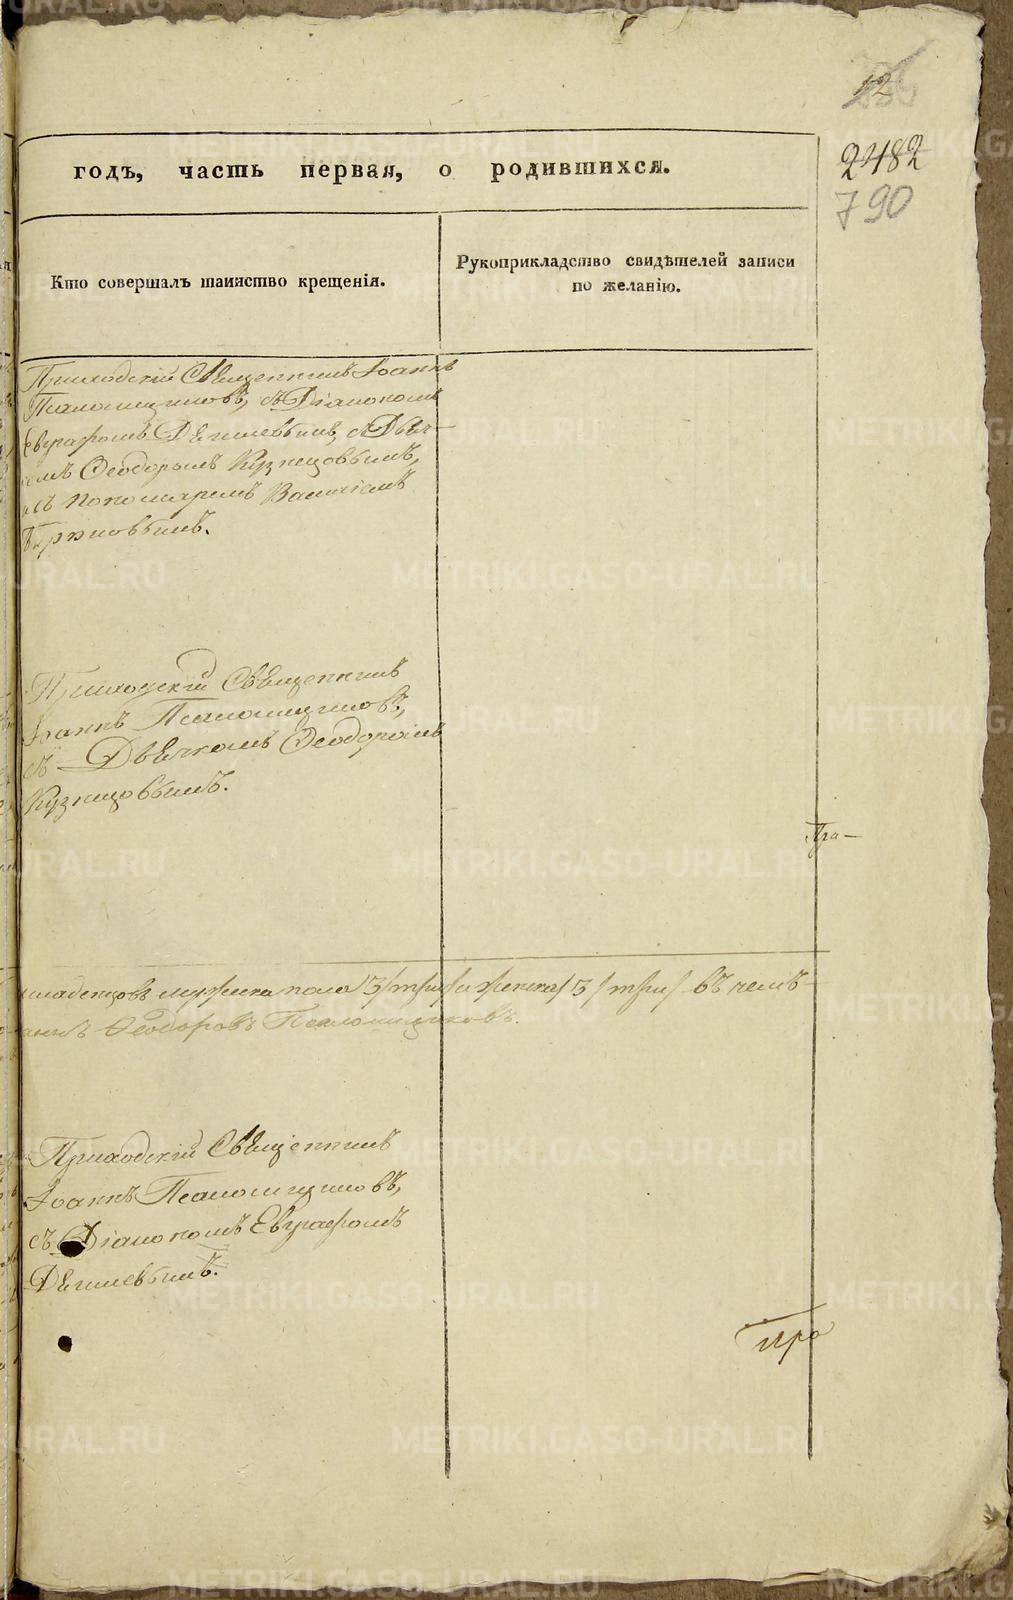 12
2482
790
годъ, часть первая, о родившихся.
Кто совершалъ таинство крещенія.
Рукоприкладство свидѣтелей записи
по желанію.
Приходскій Священникъ Іоаннъ
Псаломщиковъ, съ Діакономъ
Евграфомъ Дягилевымъ, съ Дьяч-
комъ Ѳеодоромъ Кузнецовымъ,
и съ Пономаремъ Василіемъ
Приходскій Священникъ
Іоаннъ Псаломщиковъ,
съ Дьячкомъ Ѳеодоромъ
Кузнецовымъ.
Пра-
младенцовъ мужеска пола 3/три/ и женска/ 3/ три/ въ чемъ
Ѳеодоровъ Псаломщиковъ.
Приходскій Священникъ
Іоаннъ Псаломщиковъ,
съ Діакономъ Евграфомъ
Дягилевымъ.
при
METRIKI.GASO-URAL.RU